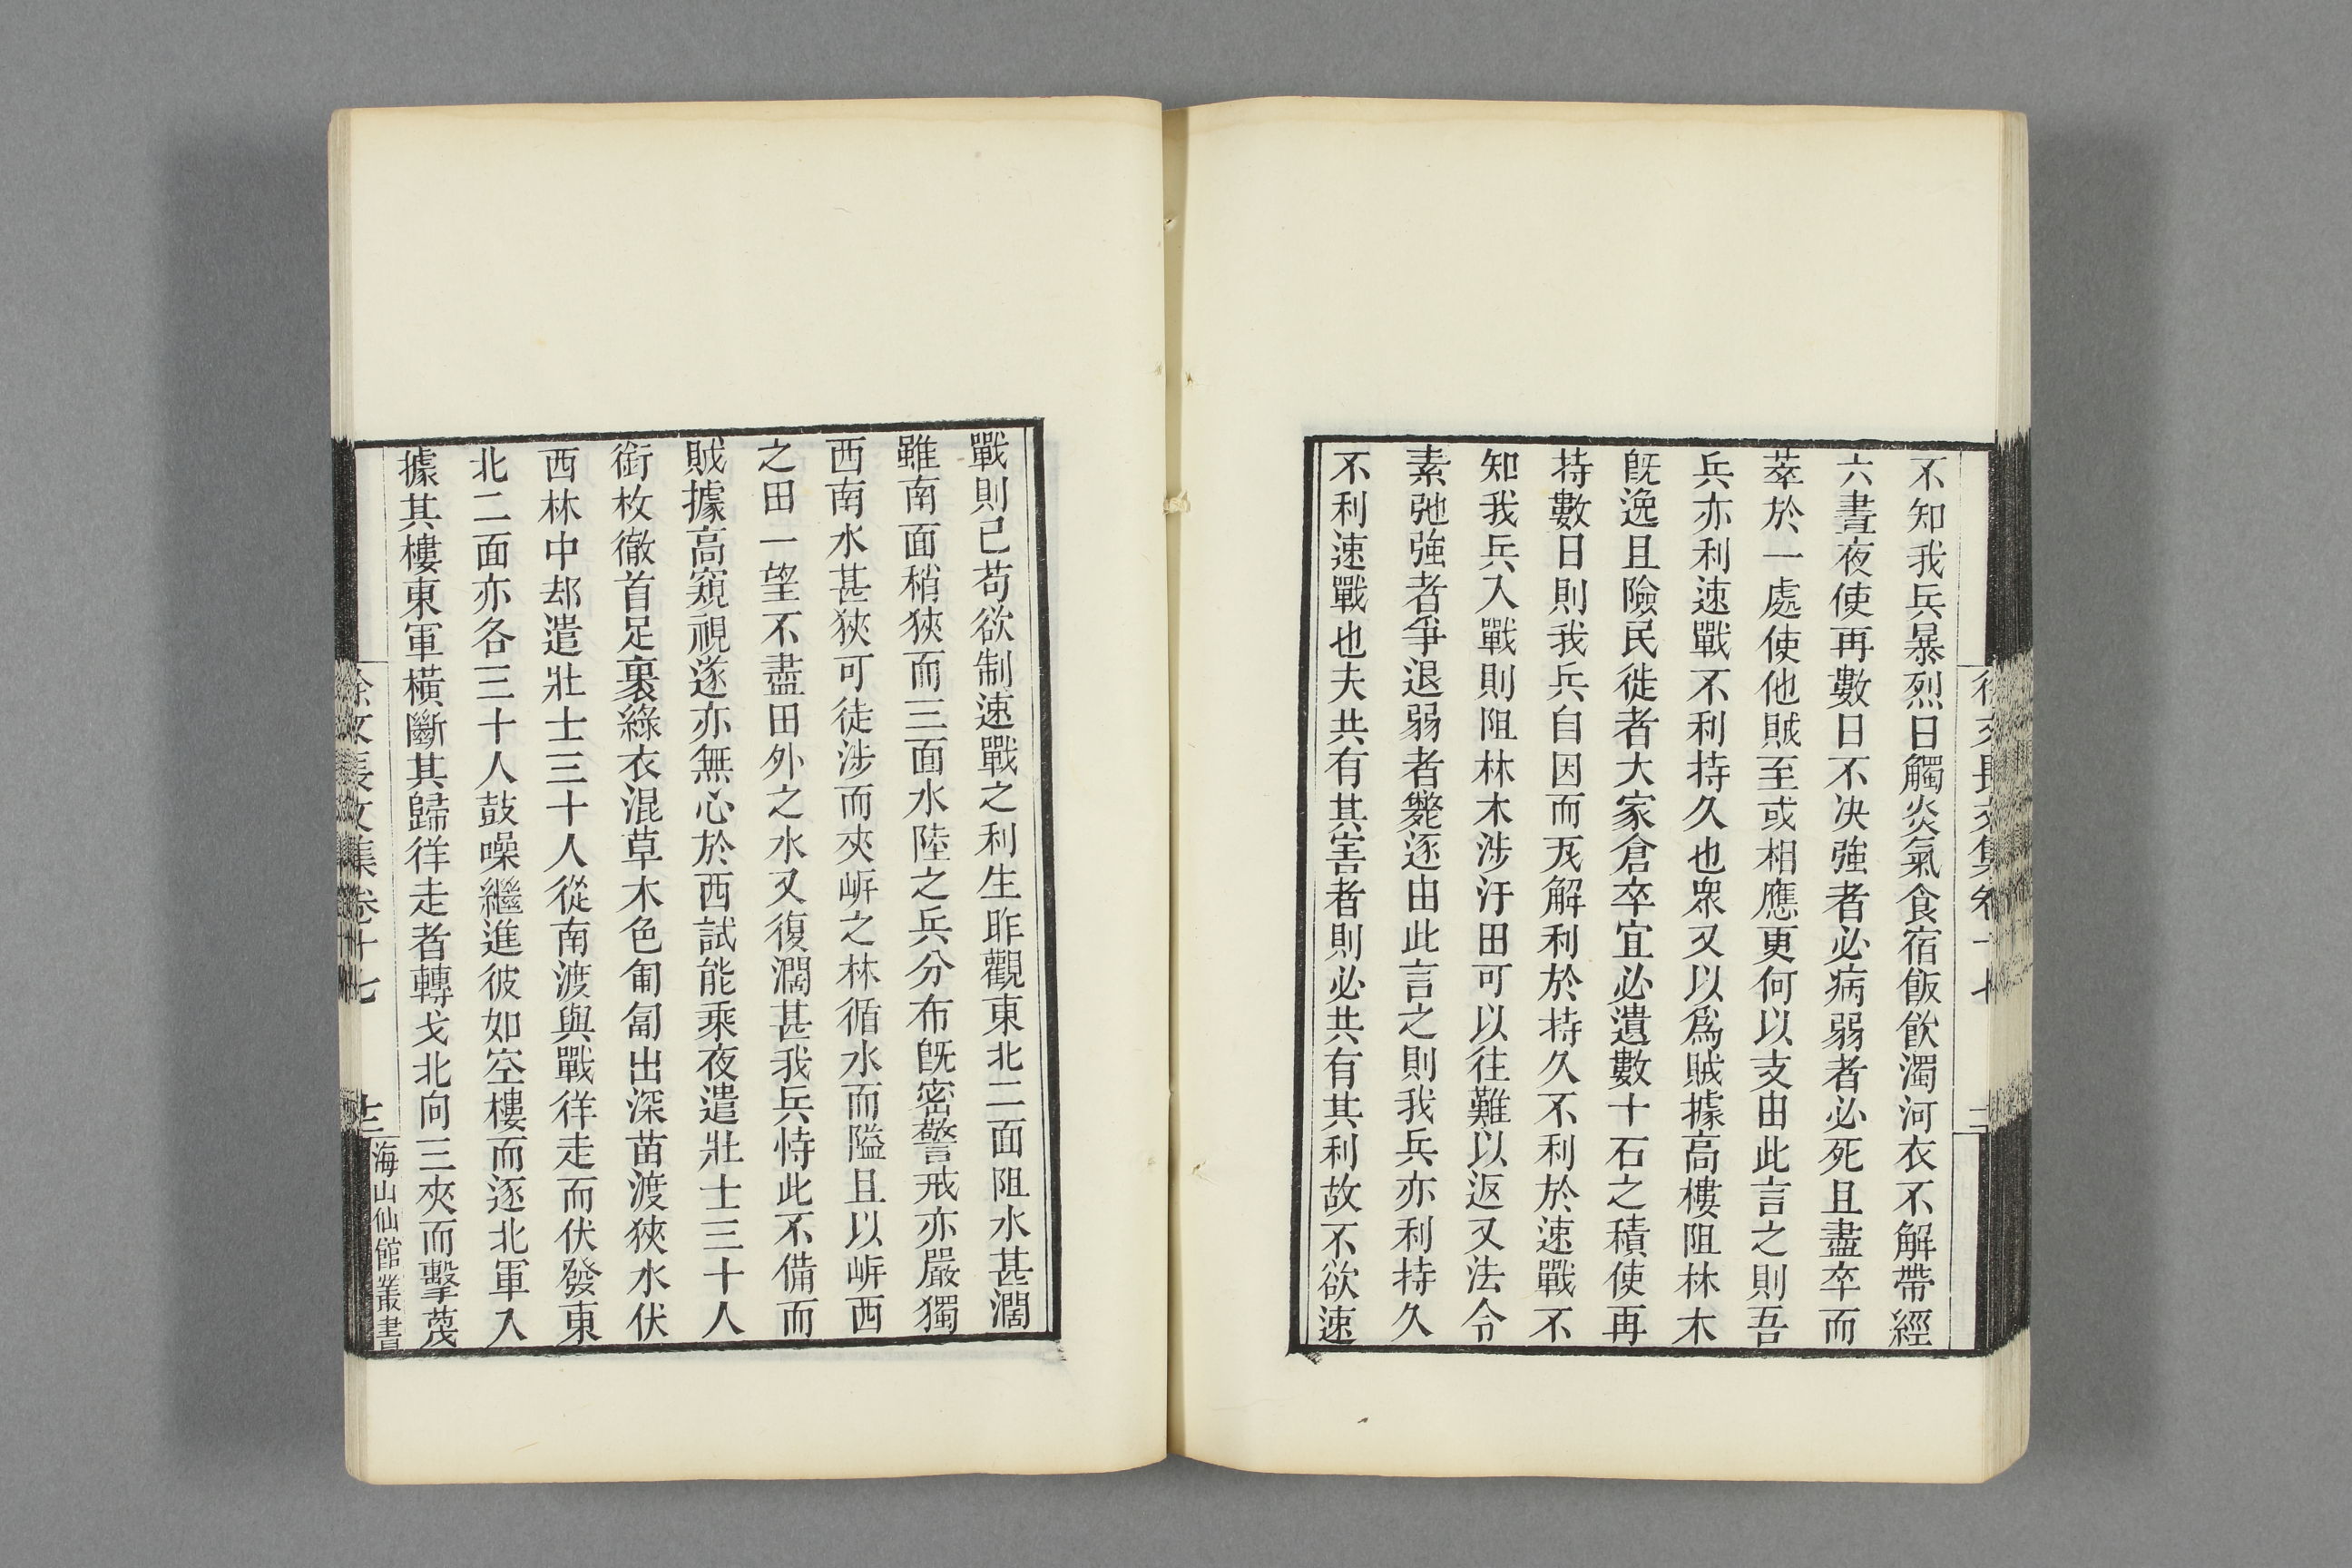 不知我兵暴烈日觸炎氣食宿飯飲濁河衣不解帶經
六晝夜使再數日不决強者必病弱者必死且盡卒而
萃於一處使他賊至或相應更何以支由此言之則吾
兵亦利速戰不利持久也衆又以爲賊據高樓阻林木
旣逸且險民徙者大家倉卒宜必遺數十石之積使再
持數日則我兵自因而瓦解利於持久不利於速戰不
知我兵入戰則阻林木涉汙田可以往難以返又法令
素弛強者爭退弱者斃逐由此言之則我兵亦利持久
不利速戰也夫共有其害者則必共有其利故不欲速
戰則已苟欲制速戰之利生昨觀東北二面阻水甚濶
雖南面稍狹而三面水陸之兵分布旣密警戒亦嚴獨
西南水甚狹可徒涉而夾㟁之林循水而隘且以㟁西
之田一望不盡田外之水又復濶甚我兵恃此不備而
賊據高窺視遂亦無心於西試能乘夜遣壯士三十人
銜枚徹首足裹綠衣混草木色匍匐出深苗渡狹水伏
西林中却遣壯士三十人從南渡與戰佯走而伏發東
北二面亦各三十人鼓噪繼進彼如空樓而逐北軍入
據其樓東軍橫斷其歸徉走者轉戈北向三夾而擊蔑
徐文長文集卷十七
十三
海山仙館叢書